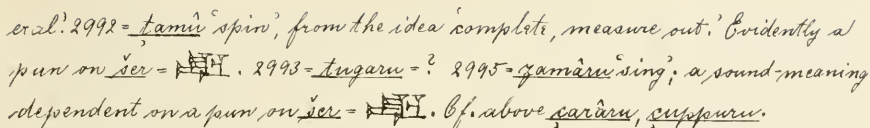 eral'. 2992 = tamû 'spin', from the idea 'complete, measure out.' Evidently a
pun on šer = . 2993 = tugaru = ? 2995 = zamâru 'sing'; a sound-meaning
dependent on a pun on šer = . Cf. above ṣarâru, ṣuppuru.